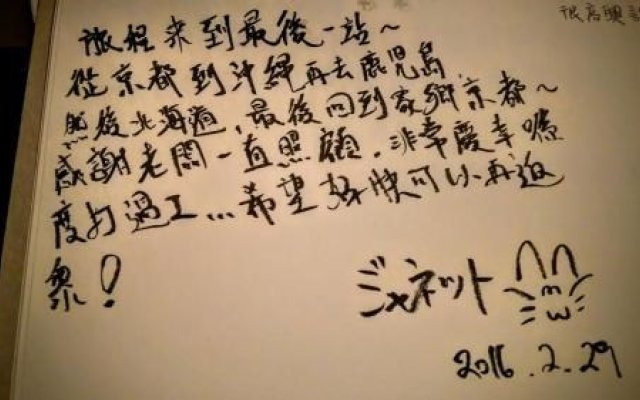 很高興認
旅程來到最後一站~
從京都到沖繩再去鹿児島
然後北海道,最後回到家鄉京都~
感謝老闆一直照顧,非常慶幸喺
度打過工...希望好快可以再返
嚟!
ジャネット
2016.2.29